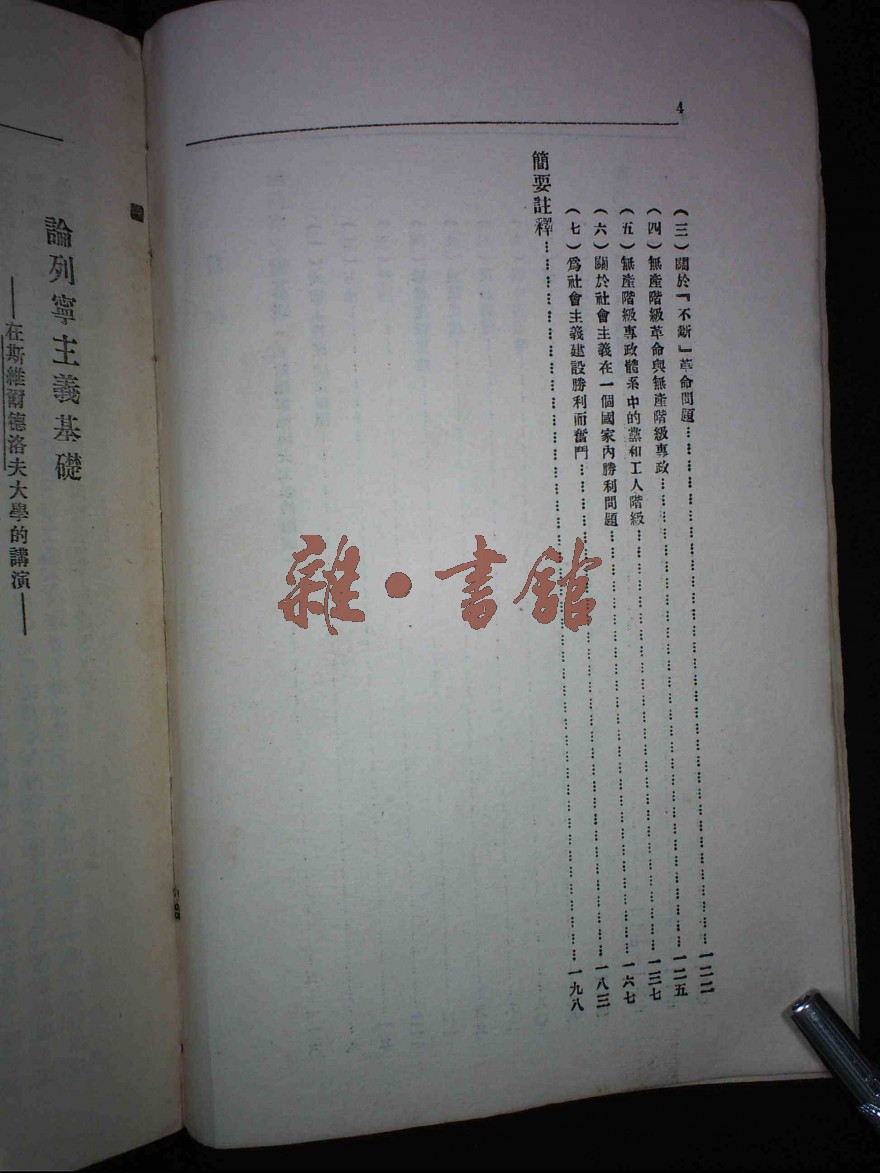 4
(三)關於『不斷』革命問題……一二二
(四)無產階級革命與無產階級專政……一二五
(五)無產階級專政體系中的黨和工人階級……一三七
(六)關於社會主義在一個國家內勝利問題……一六七
(七)爲社會主義建設勝利而奮鬥……一八三
簡要註釋……一九八
論列寧主義基礎
——在斯維爾德洛夫大學的講演——
雜·書館